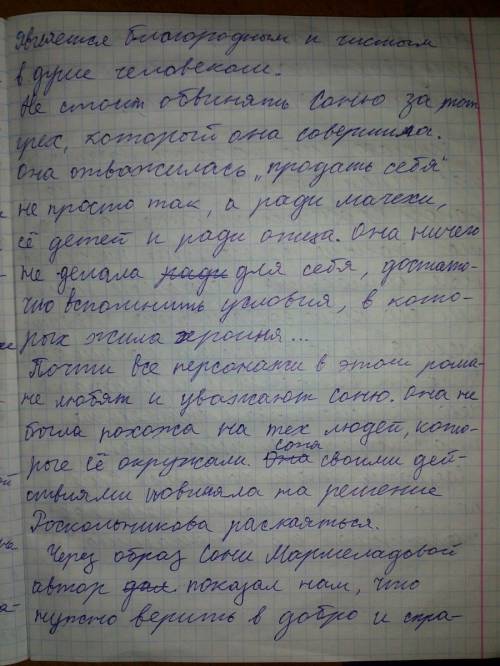 является благородным и чистым
в душе человеком.
Не стоит обвинять Соню за тот
грех, который она совершила.
Она отважилась „продать себя"
не просто так, а ради мачехи,
её детей и ради отца. Она ничего
не делала ради для себя, достато-
чно вспомнить условия, в кото-
рых жила хроиня...
Почти все персонажи в этом рома-
не любят и уважают Соню. Она не
была похожа на тех людей, кото-
рые её окружали. Она Соня своими дей-
ствиями повлияла на решение
Роскольникова раскаяться.
Через образ Сони Мармеладовой
автор дал показал нам, что
нужно верить в добро и спра-